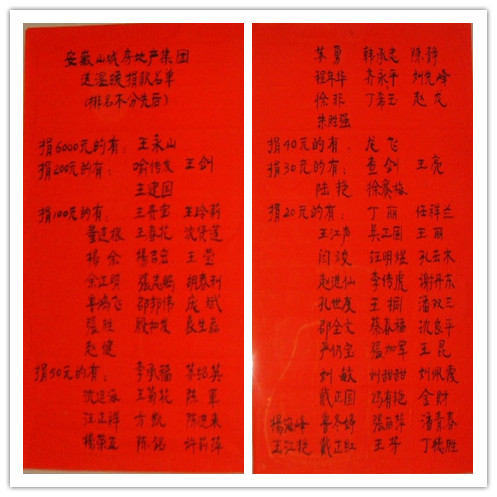 安徽山城房地产集团
送温暖捐款名单
(排名不分先后)
捐6000元的有: 王永山
捐200元的有: 喻传友 王剑
王建国
捐100元的有: 王丹宝 王玲莉
董连根 王春花 沈贤莲
杨余 杨吉宏 王莹
余正明 张志鹏 胡春利
车鸿飞 邵邦伟 庞斌
張胜 殷加友 袁生磊
赵健
捐50元的有: 李承福 苏铭英
沈延家 王菊花 陈军
汪正祥 方凯 陈进来
楊荣五 陈铭 许莉萍
朱勇 韩承忠 陈静
程年华 齐永平 刘先峰
徐非 丁希玉 赵龙
朱胜强
捐40元的有: 龙飞
捐30元的有: 查剑 王亮
陆艳 徐赛梅
捐20元的有: 丁丽 任祥兰
王江声 吴正国 王丽
闫波 汪明煜 孔云木
赵进仙 李传虎 谢丹东
孔世度 王桐 潘双三
邵金文 蔡春福 沈良平
严仍宝 張加军 王昆
刘敏 刘甜甜 刘佩霞
戴正国 冯有艳 金财
楊海峰 鲁冬婷 張丽萍 潘青春
王江艳 戴正红 王芳 丁德胜